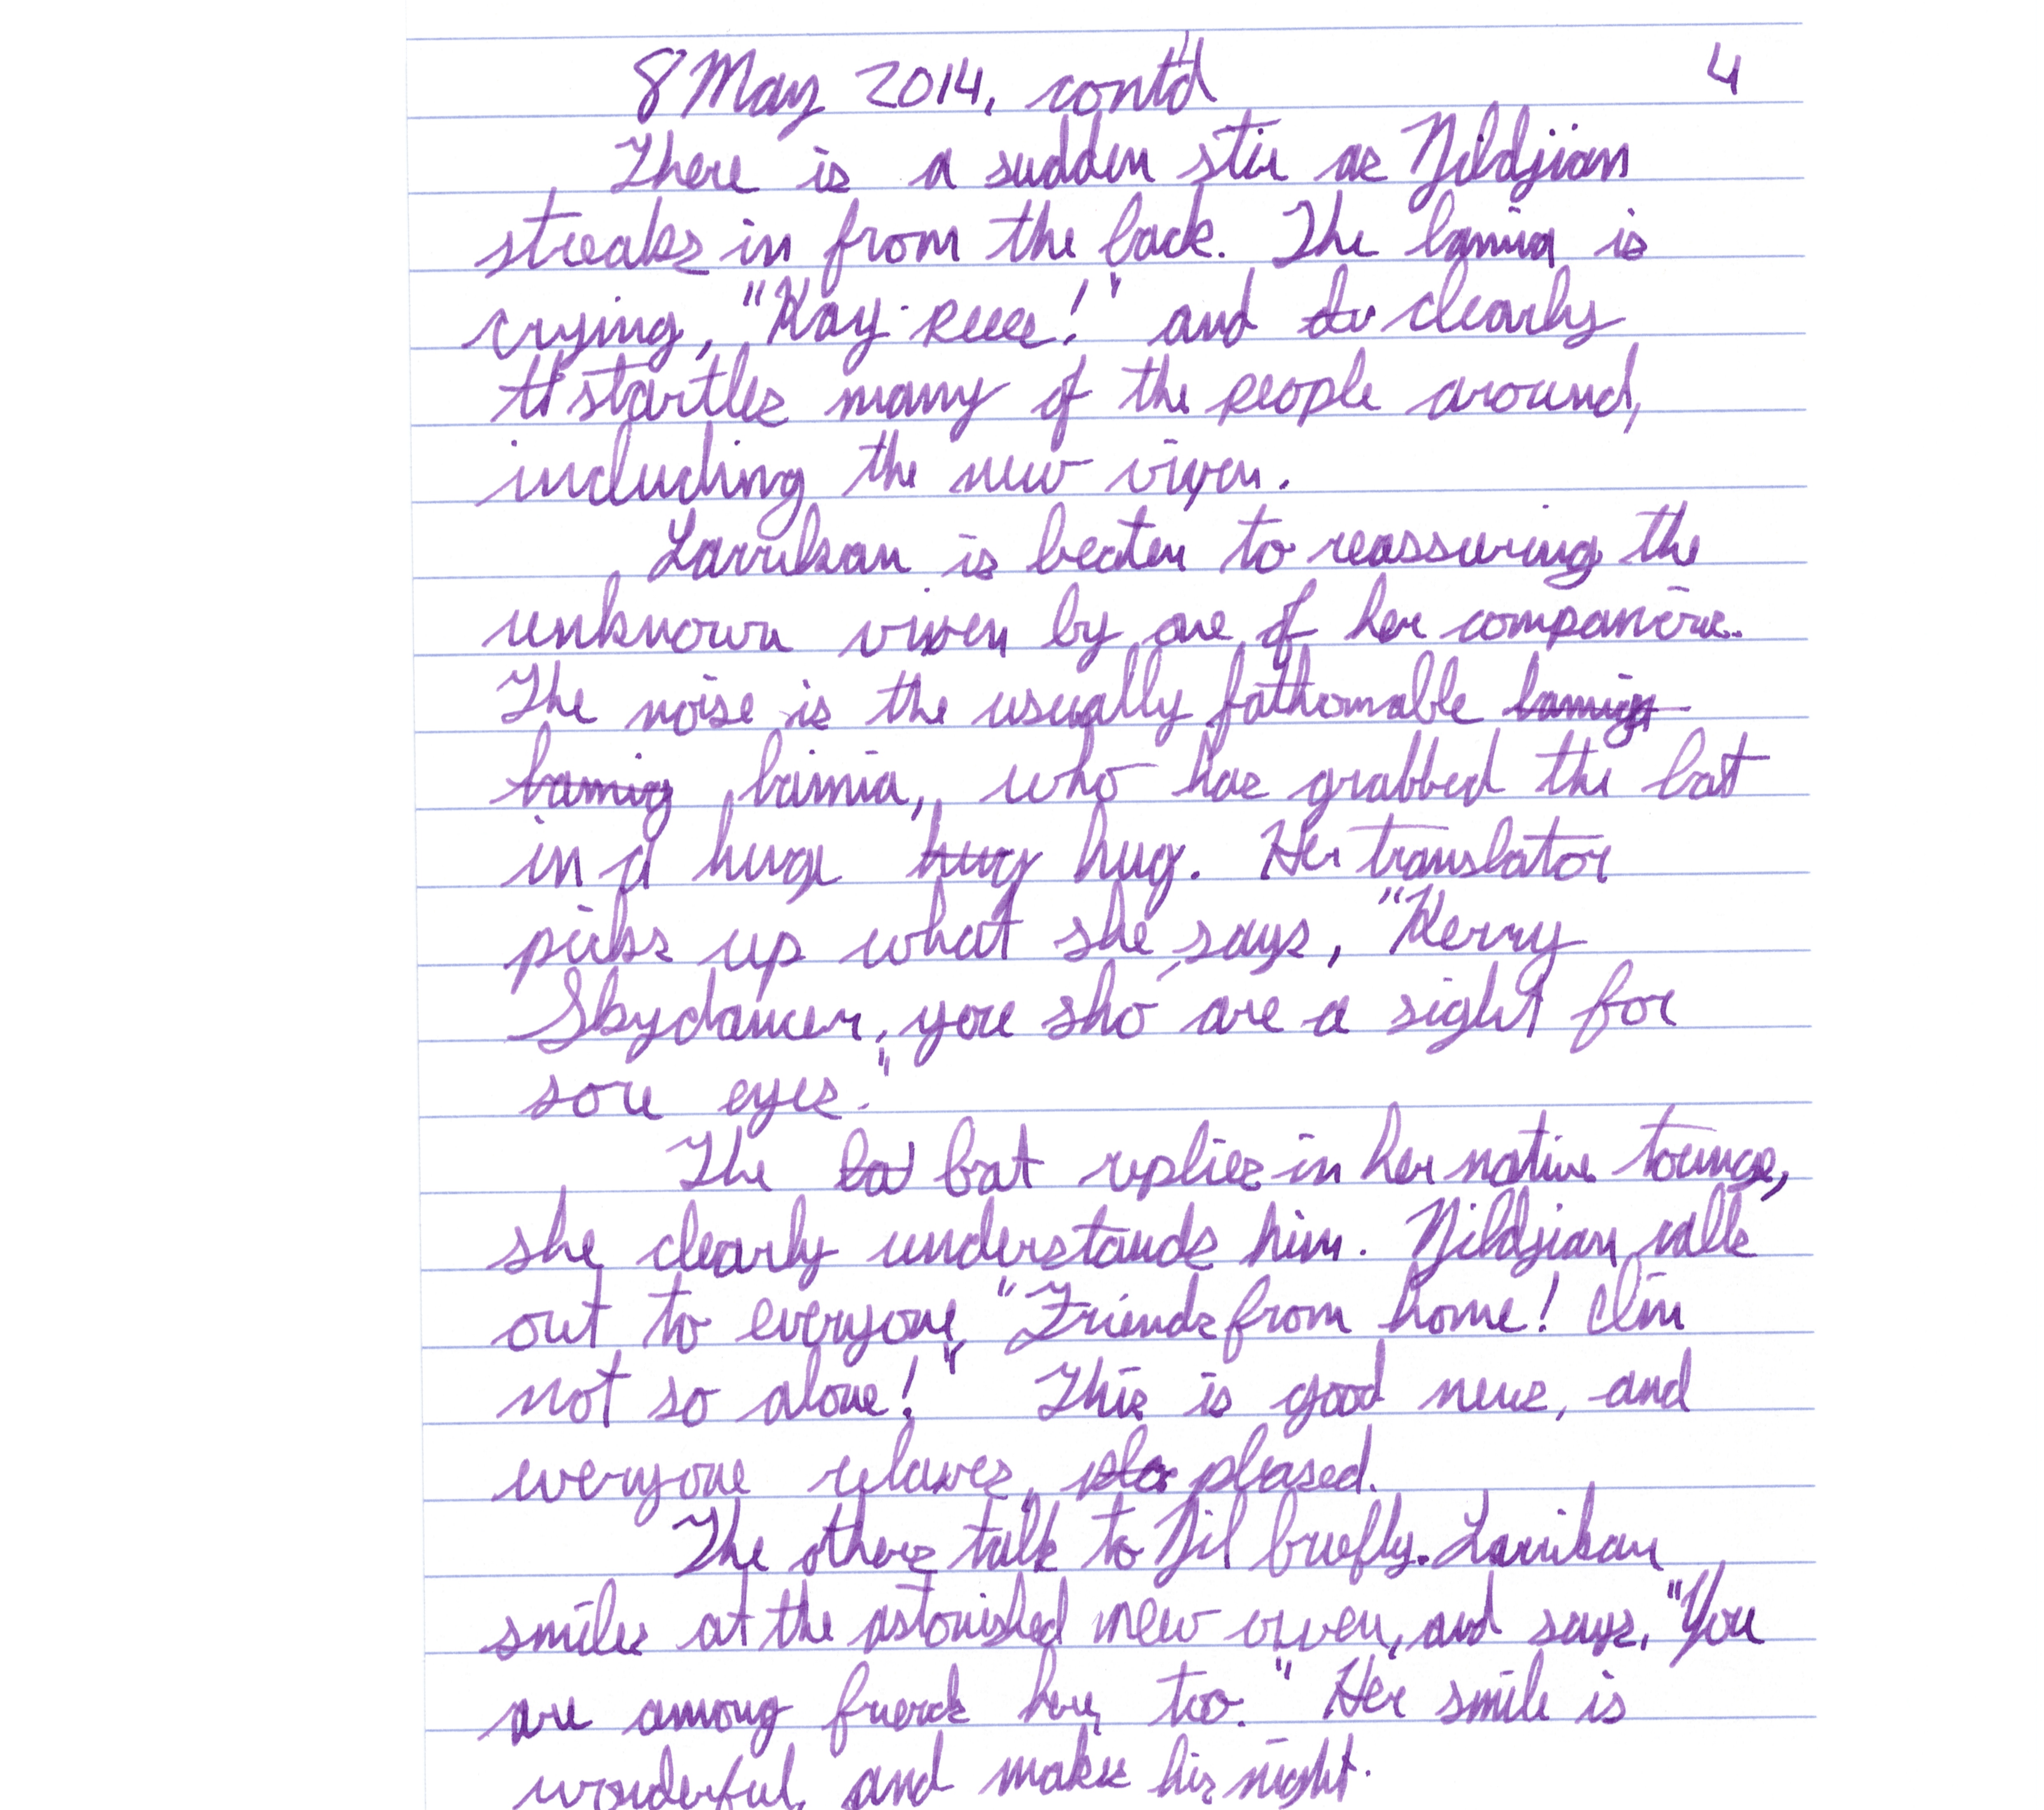 8 May 2014, cont'd 4
There is a sudden stir as Nildjian
streaks in from the back. The lamia is
crying, "Kay-reee!" and clearly
startles many of the people around,
including the new vixen.
Larrikan is beaten to reassuring the
unknown vixen by one of her
The noise is the usually fathomable
lamia, who has grabbed the bat
in a huge hug hug. Her translator
picks up what she says, "Kerry
Skydancer, you sho' are a sight for
sore eyes."
The bat replies in her native tounge,
she clearly understands him. Nildjian calls
out to everyone, "Friends from home! I'm
not so alone!" This is good news, and
everyone relaxes, pleased.
The others talk to Nil briefly. Larrikan
smiles at the astonished new vixen, and says, "You
are among friends here, too." Her smile is
wonderful, and makes his night.